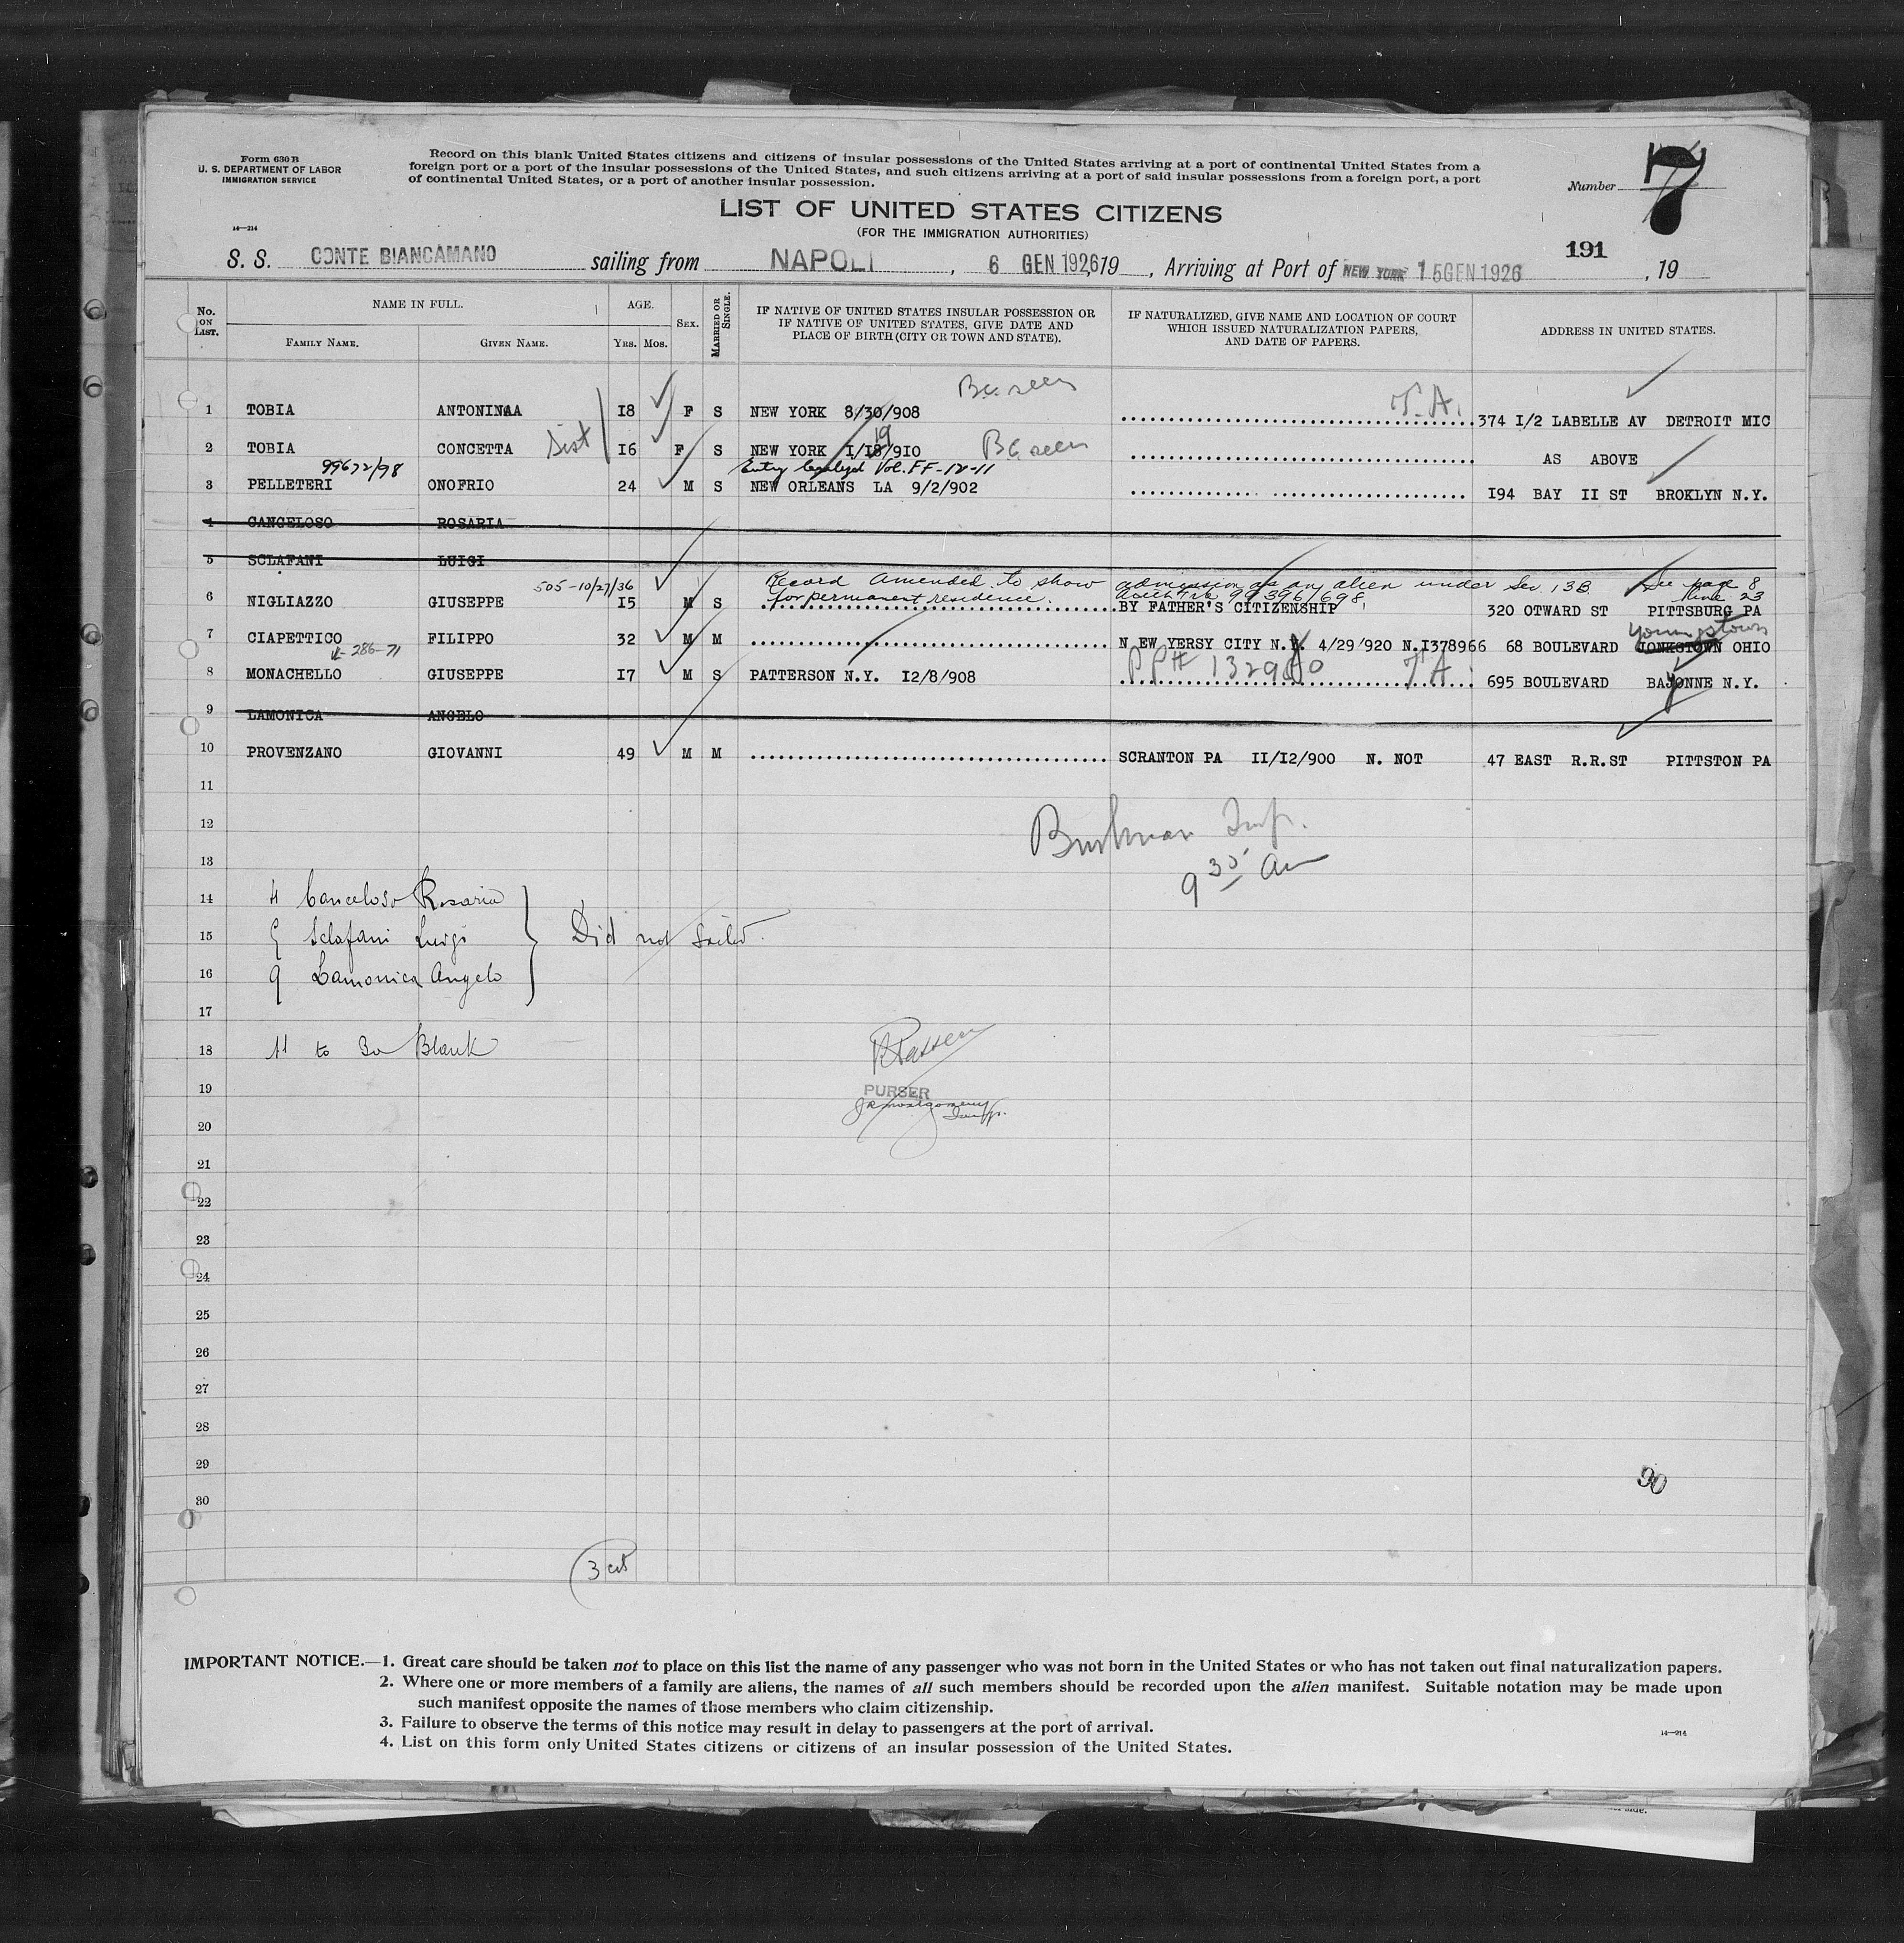 Form 630 B
U. S. DEPARTMENT OF LABOR
IMMIGRATION SERVICE
Record on this blank United States citizens and citizens of insular possessions of the United States arriving at a port of continental United States from a
foreign port or a port of the insular possessions of the United States, and such citizens arriving at a port of said insular possessions from a foreign port, a port
of continental United States, or a port of another insular possession.
Number 7
14—214
LIST OF UNITED STATES CITIZENS
(FOR THE IMMIGRATION AUTHORITIES)
191
S. S. CONTE BIANCAMANO sailing from NAPOLI, 6 GEN 1926 19 , Arriving at Port of NEW YORK 15 GEN 1926 , 19
No. ON LIST. NAME IN FULL. AGE. SEX. MARRIED OR SINGLE. IF NATIVE OF UNITED STATES INSULAR POSSESSION OR IF NATIVE OF UNITED STATES, GIVE DATE AND PLACE OF BIRTH (CITY OR TOWN AND STATE). IF NATURALIZED, GIVE NAME AND LOCATION OF COURT WHICH ISSUED NATURALIZATION PAPERS, AND DATE OF PAPERS. ADDRESS IN UNITED STATES.
FAMILY NAME. GIVEN NAME. YRS. MOS.
B.C. seen
1 TOBIA ANTONINAA I8 F S NEW YORK 8/30/908 T.A. 374 I/2 LABELLE AV DETROIT MIC
Sist 19
2 TOBIA CONCETTA I6 F S NEW YORK I/I8/9IO BC seen AS ABOVE
99672/98 Entry Vol. FF-12-11
3 PELLETERI ONOFRIO 24 M S NEW ORLEANS LA 9/2/902 I94 BAY II ST BROKLYN N.Y.
4 CANCELOSO ROSARIA
5 SCLAFANI LUIGI
505-10/27/36 Record Amended to show admission as an alien under Sec. 13B See page 8
for permanent residence. 99396/698 line 23
6 NIGLIAZZO GIUSEPPE I5 M S BY FATHER'S CITIZENSHIP 320 OTWARD ST PITTSBURG PA
Youngstown
7 CIAPETTICO FILIPPO 32 M M N EW YERSY CITY N.Y. 4/29/920 N.I378966 68 BOULEVARD JONKSTOWN OHIO
286-71 PP# 132960 TA
8 MONACHELLO GIUSEPPE I7 M S PATTERSON N.Y. I2/8/908 695 BOULEVARD BAJONNE N.Y.
y
9 LAMONICA ANGELO
10 PROVENZANO GIOVANNI 49 M M SCRANTON PA II/I2/900 N. NOT 47 EAST R.R.ST PITTSTON PA
11
12
Insp.
13
9 35 am
14 4 Canceloso Rosaria
15 5 Sclafani Luigi Did not sailed.
16 9 Lamonica Angelo
17
18 11 to 30 Blank
19
PURSER
JR Montgomery
Insp.
20
21
22
23
24
25
26
27
28
29
30
30
3 cit
IMPORTANT NOTICE.—1. Great care should be taken not to place on this list the name of any passenger who was not born in the United States or who has not taken out final naturalization papers.
2. Where one or more members of a family are aliens, the names of all such members should be recorded upon the alien manifest. Suitable notation may be made upon
such manifest opposite the names of those members who claim citizenship.
3. Failure to observe the terms of this notice may result in delay to passengers at the port of arrival.
4. List on this form only United States citizens or citizens of an insular possession of the United States.
14—214